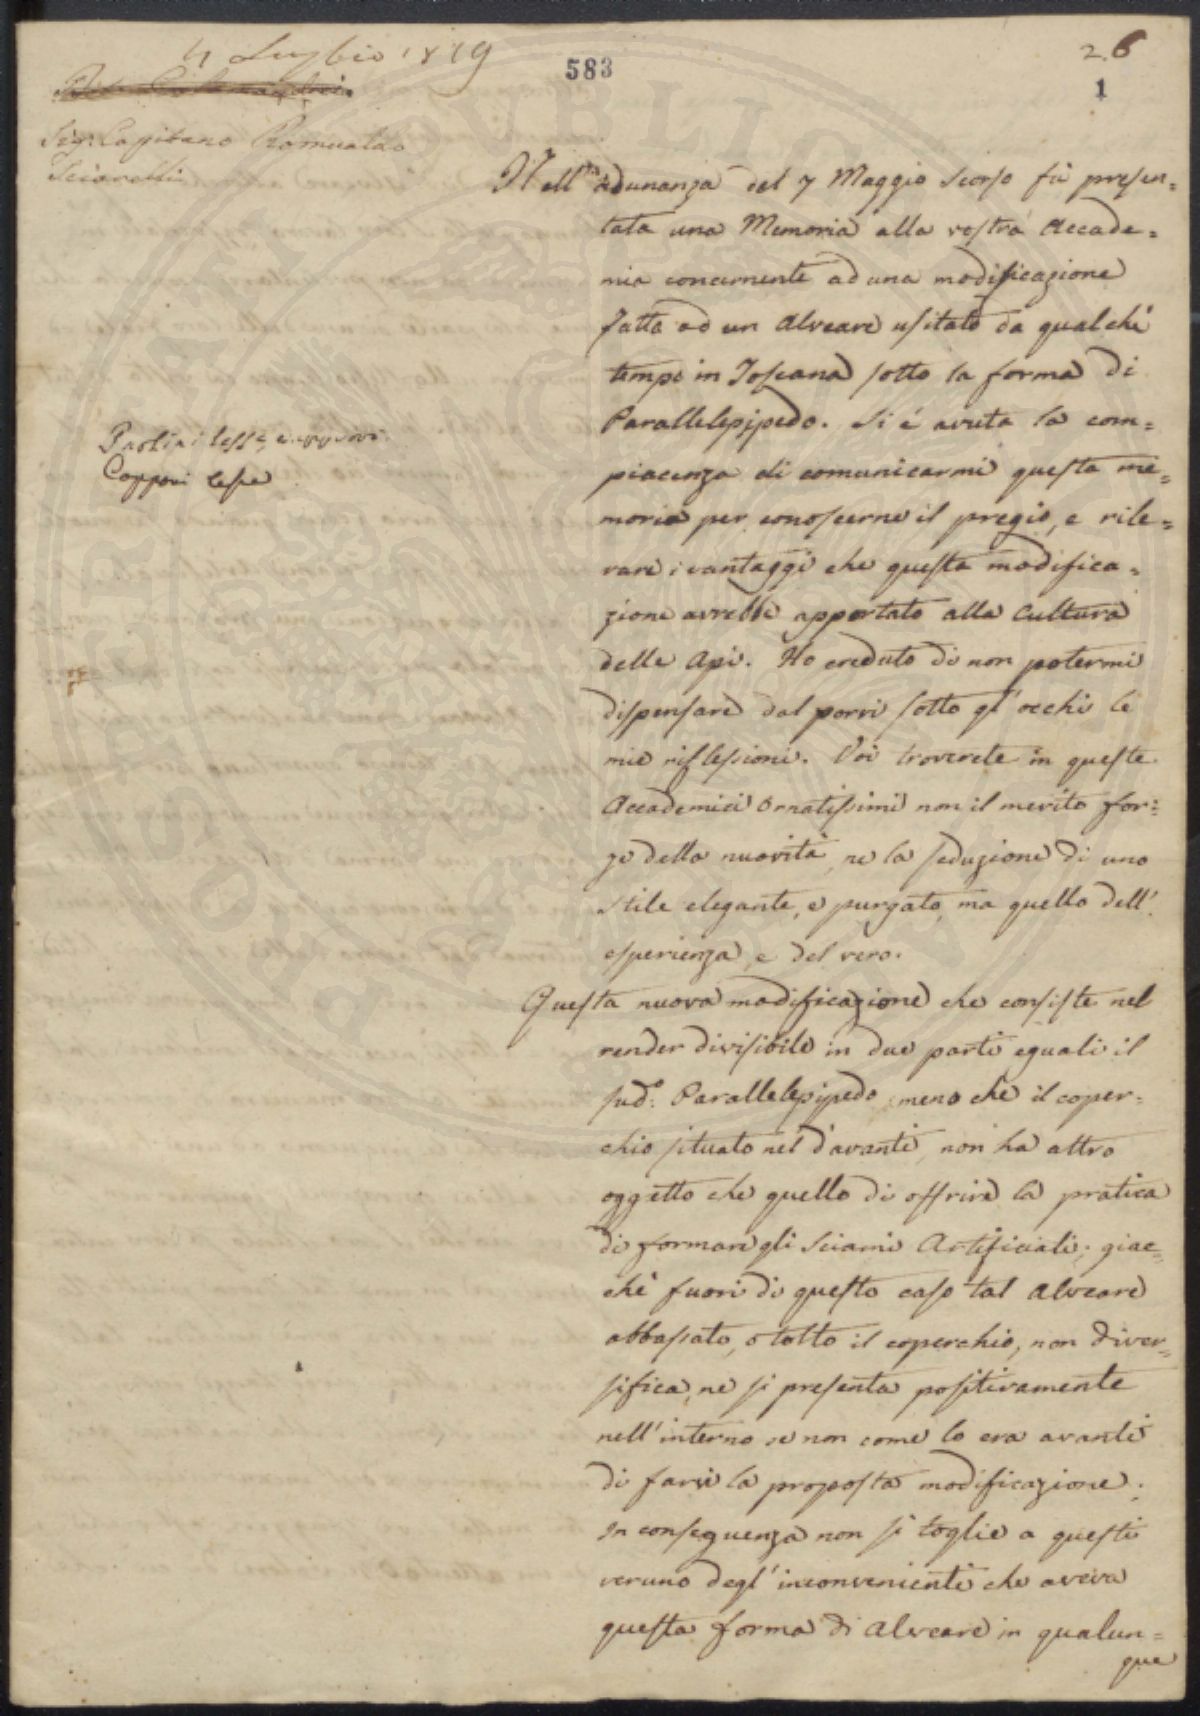 4 Luglio 1819
583
26
1
Sig. Capitano Romualdo
Nell' adunanza del 7 Maggio scorso fù presen=
tata una Memoria alla vostra Accade=
mia concernente ad una modificazione
fatta ad un Alveare usitato da qualche
tempo in Toscana sotto la forma di
Parallelepipedo. Si é avuta la com=
piacenza di comunicarmi questa me=
moria per conoscerne il pregio, e rile=
vare i vantaggi che questa modifica=
zione avrebbe apportato alla cultura
delle Api. Ho creduto di non potermi
dispensare dal porvi sotto gl'occhi le
mie riflessioni. Voi troverete in queste
Accademici Ornatissimi non il merito for=
ze della nuovità, ne la seduzione di uno
stile elegante, e purgato, ma quello dell'
esperienza, e del vero.
Questa nuova modificazione che consiste nel
render divisibile in due parti eguali il
sud.º Parallelepipedo, meno che il coper=
chio situato nel d'avanti, non ha altro
oggetto che quello di offrire la pratica
di formare gli Sciami Artificiali; giac=
chè fuori di questo caso tal Alveare
abbassato, o tolto il coperchio, non diver=
sifica, ne si presenta positivamente
nell'interno se non come lo era avanti
di farsi la proposta modificazione.
In conseguenza non si toglie a questi
veruno degl'inconvenienti che aveva
questa forma di Alveare in qualun=
que
Paolini lesse, e approvò.
Capponi lesse